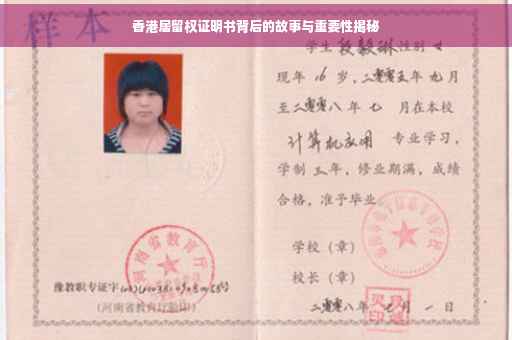 香港居留权证明书背后的故事与重要性揭秘
样本
学生段毅琳性别女
现年16岁,二零零五年九月
至二零零八年七月在本校
计算机应用 专业学习,
学制三年,修业期满,成绩
合格,准予毕业
学校(章)
校长(章)
二零零八年七月一日
河南省教育厅
豫教职专证字
(河南省教育厅验印)